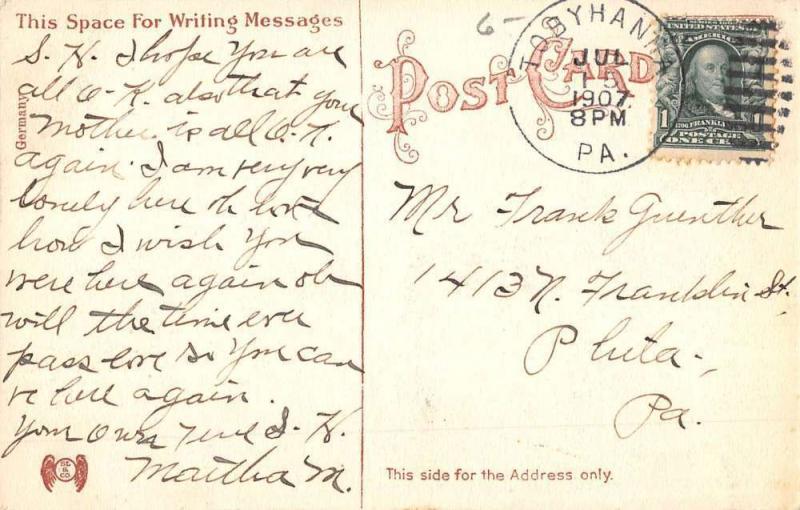 This Space For Writing Messages
S. H. I hope you are
all O-K. also that your
Mother is all O.K.
again. I am very very
lonely here oh love
how I wish you
were here again oh
will the time ever
pass love so you can
re here again.
Your Own True S. H.
Martha M.
Germany
BL & CO.
6-
POST CARD
TOBYHANNA
JUL
15
1907
8 PM
PA.
UNITED STATES
AMERICA
1
FRANKLIN
POSTAGE
ONE CENT
Mr Frank Guenther
1413 N. Franklin St.
Phila.,
Pa.
This side for the Address only.